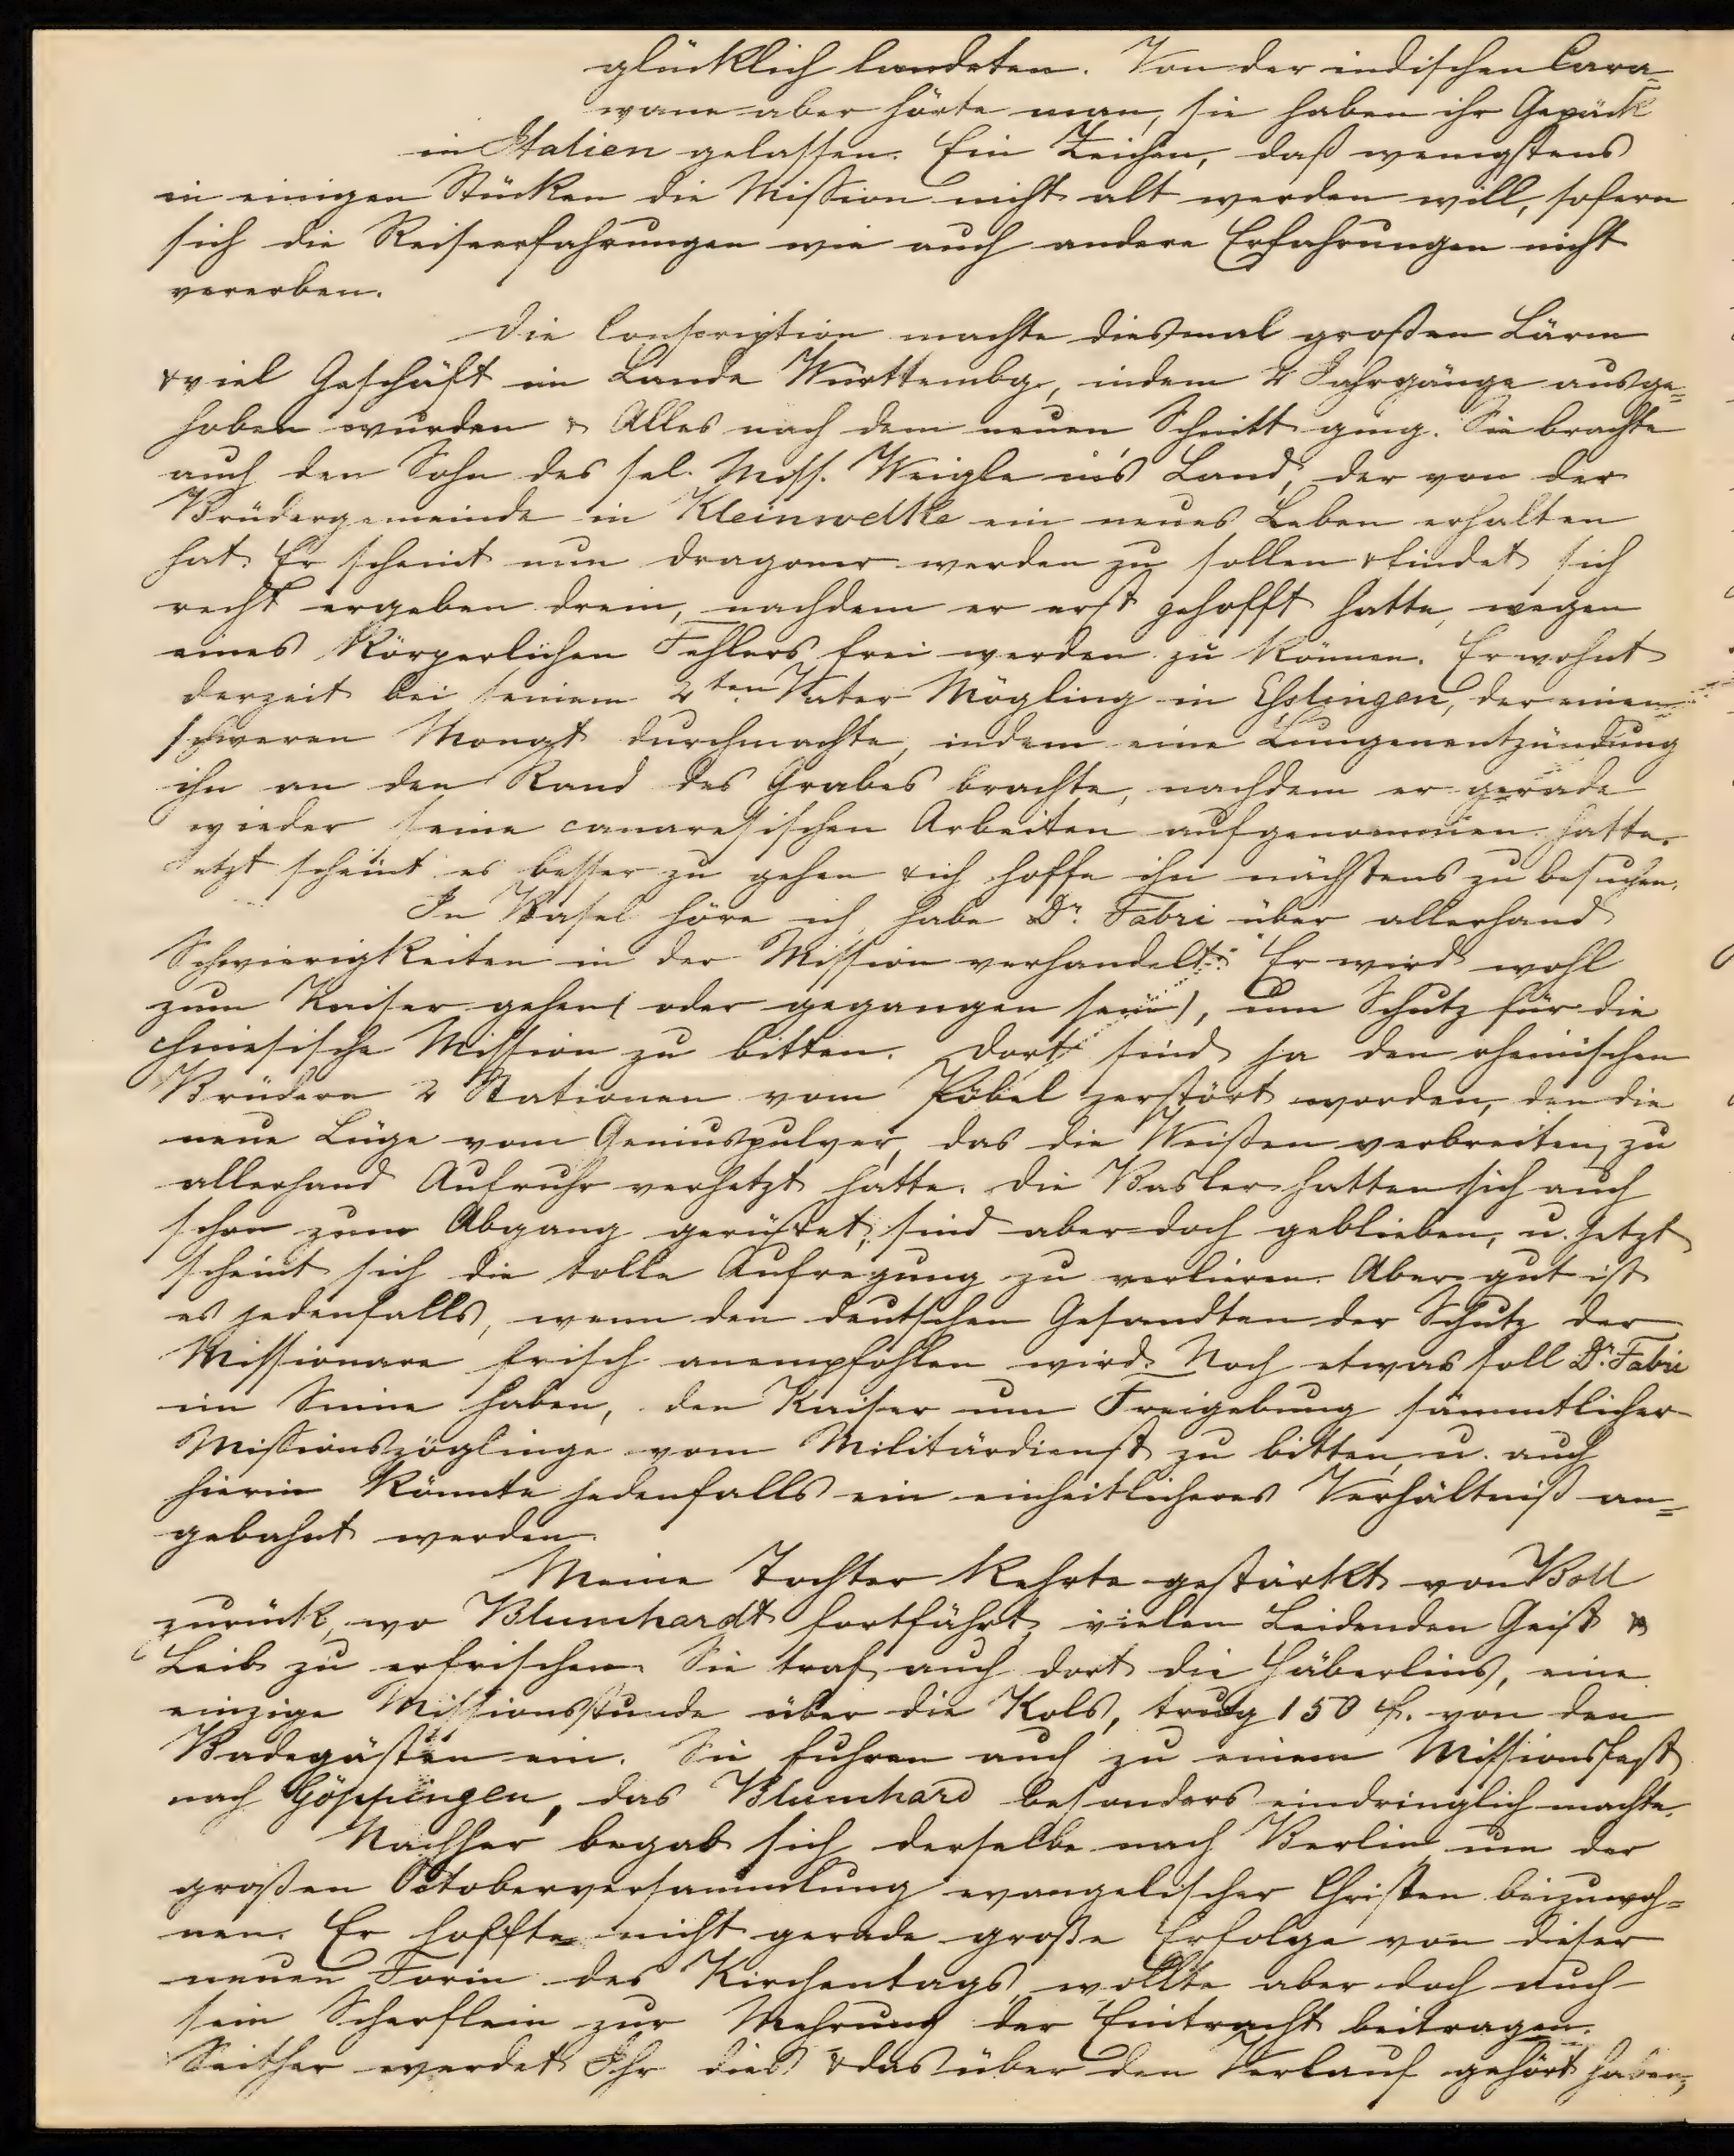 glücklich landeten. Von der indischen Cara-
wane aber hörte man, sie haben ihr Gepäck
in Italien gelassen. Ein Zeichen, daß wenigstens
in einigen Stücken die Mission nicht alt werden will, sofern
sich die Reiseerfahrungen wie auch andere Erfahrungen nicht
vererben.
Die Conscription machte diesmal großen Lärm
& viel Geschäft im Lande Württembg., indem 2 Jahrgänge ausge-
hoben wurden & Alles nach dem neuen Schnitt ging. Sie brachte
auch den Sohn des sel. Miss. Weigle in's Land, der von der
Brüdergemeinde in Kleinwelke ein neues Leben erhalten
hat. Er scheint nun Dragoner werden zu sollen & findet sich
recht ergeben drein, nachdem er erst gehofft hatte, wegen
eines körperlichen Fehlers frei werden zu können. Er wohnt
derzeit bei seinem 2ten Vater Mögling in Esslingen, der einen
schweren Monat durchmachte, indem eine Lungenentzündung
ihn an den Rand des Grabes brachte, nachdem er gerade
wieder seine canaresischen Arbeiten aufgenommen hatte.
Jetzt scheint es besser zu gehen & ich hoffe ihn nächstens zu besuchen.
In Basel höre ich, habe Dr. Fabri über allerhand
Schwierigkeiten in der Mission verhandelt. Er wird wohl
zum Kaiser gehen (oder gegangen sein), um Schutz für die
chinesische Mission zu bitten. Dort sind ja den rheinischen
Brüdern 2 Stationen vom Pöbel zerstört worden, den die
neue Lüge vom Geniuspulver, das die Weißen verbreiten, zu
allerhand Aufruhr verhetzt hatte. Die Basler hatten sich auch
schon zum Abgang gerüstet, sind aber doch geblieben, u. jetzt
scheint sich die tolle Aufregung zu verlieren. Aber gut ist
es jedenfalls, wenn den deutschen Gesandten der Schutz der
Missionare frisch anempfohlen wird. Noch etwas soll Dr. Fabri
im Sinne haben, den Kaiser um Freigebung sämmtlicher
Missionszöglinge vom Militärdienst zu bitten, u. auch
hierin könnte jedenfalls ein einheitlicheres Verhältniß an-
gebahnt werden.
Meine Tochter kehrte gestärkt von Boll
zurück, wo Blumhardt fortfährt, vielen Leidenden Geist &
Leib zu erfrischen. Sie traf auch dort die Häberlins, eine
einzige Missionsstunde über die Kols, trug 150 f. von den
Badegästen ein. Sie fuhren auch zu einem Missionsfest
nach Göppingen, das Blumhard besonders eindringlich machte.
Nachher begab sich derselbe nach Berlin um der
großen Octoberversammlung evangelischer Christen beizuwoh-
nen. Er hoffte nicht gerade große Erfolge von dieser
neuen Form des Kirchentags, wollte aber doch auch
sein Scherflein zur Mehrung der Eintracht beitragen.
Seither werdet Ihr dies & das über den Verlauf gehört haben,